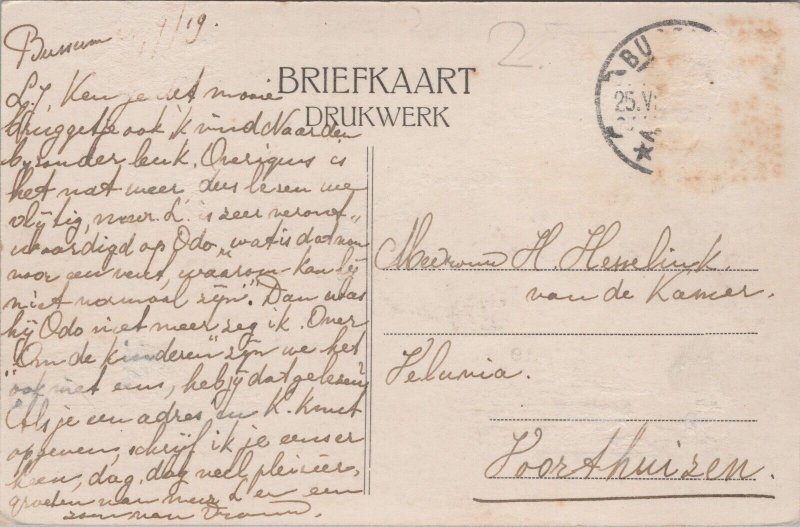 Bussum /9/19.
L.J, Ken je dit mooie
bruggetje ook, 'k vind Naarden
byzonder leuk. Overigens is
het nat weer, dus leren we
vlijtig, mevr. L. is zeer veront„
waardigd op Odo, „wat is dat nou
voor een vent, waarom kan hij
niet normaal zijn". Dan was
hij Odo niet meer zeg ik. Over
"Om de kinderen" zijn we het
ook niet eens, heb jij dat gelezen?
Als je een adres in K. kunt
opgeven, schrijf ik je eens er
heen, dag, dag veel pleizier,
groeten van mevr L en een
zoen van
BRIEFKAART
DRUKWERK
2.
BU
25.V
Mevrouw H. Hesselink
van de Kamer.
Velunia.
Voorthuizen.